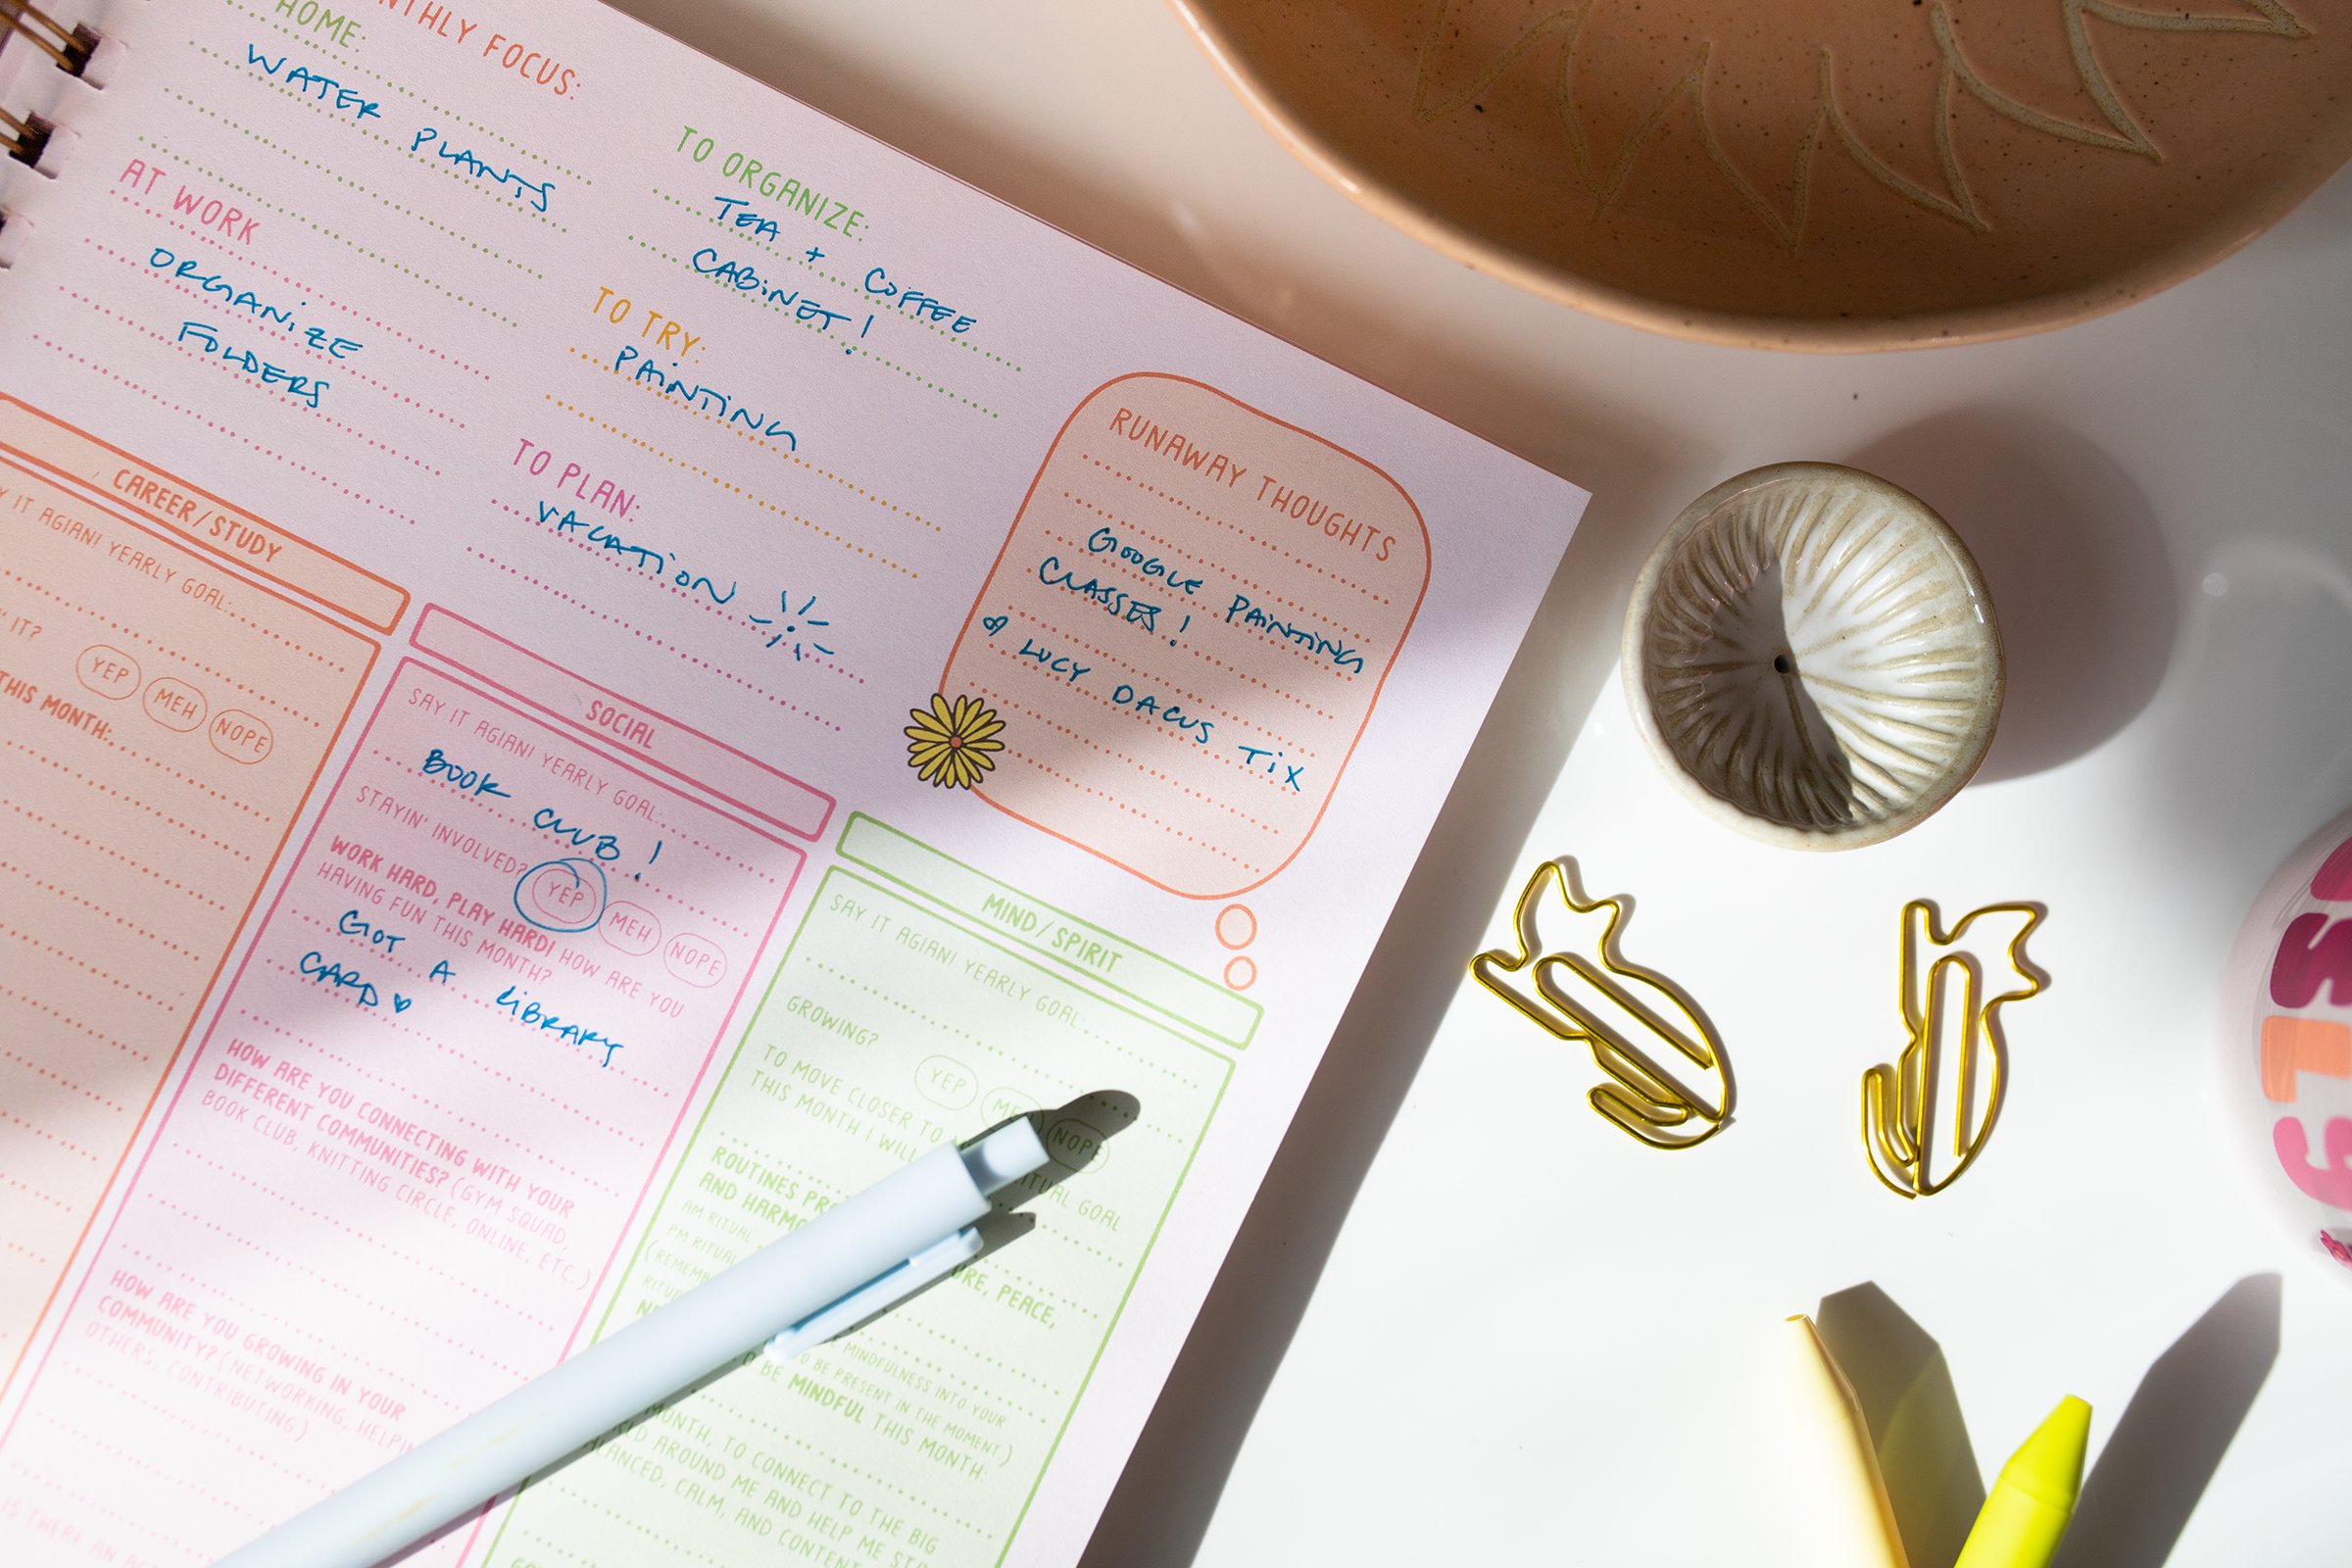 NTHLY FOCUS:
HOME:
WATER PLANTS
AT WORK
ORGANIZE
FOLDERS
TO ORGANIZE:
TEA + COFFEE
CABINET!
TO TRY:
PAINTING
TO PLAN:
VACATION
RUNAWAY THOUGHTS
GOOGLE PAINTING
CLASSES!
LUCY DACUS TIX
CAREER/STUDY
Y IT AGIAN! YEARLY GOAL:
IT?
YEP MEH NOPE
THIS MONTH:
SOCIAL
SAY IT AGIAN! YEARLY GOAL:
BOOK CLUB!
STAYIN' INVOLVED? YEP MEH NOPE
WORK HARD, PLAY HARD! HOW ARE YOU
HAVING FUN THIS MONTH?
GOT A LIBRARY
CARD
HOW ARE YOU CONNECTING WITH YOUR
DIFFERENT COMMUNITIES? (GYM SQUAD,
BOOK CLUB, KNITTING CIRCLE, ONLINE, ETC.)
HOW ARE YOU GROWING IN YOUR
COMMUNITY? (NETWORKING, HELPIN
OTHERS, CONTRIBUTING)
IS THERE AN
MIND/SPIRIT
SAY IT AGIAN! YEARLY GOAL:
GROWING? YEP ME NOPE
TO MOVE CLOSER TO
THIS MONTH I WILL
RITUAL GOAL
ROUTINES PR
AND HARMO
URE, PEACE,
AM RITUAL
PM RITUAL
(REMEMB
RITU
MINDFULNESS INTO YOUR
TO BE PRESENT IN THE MOMENT.)
O BE MINDFUL THIS MONTH:
MONTH, TO CONNECT TO THE BIG
AROUND ME AND HELP ME ST
LANCED, CALM, AND CONTENT